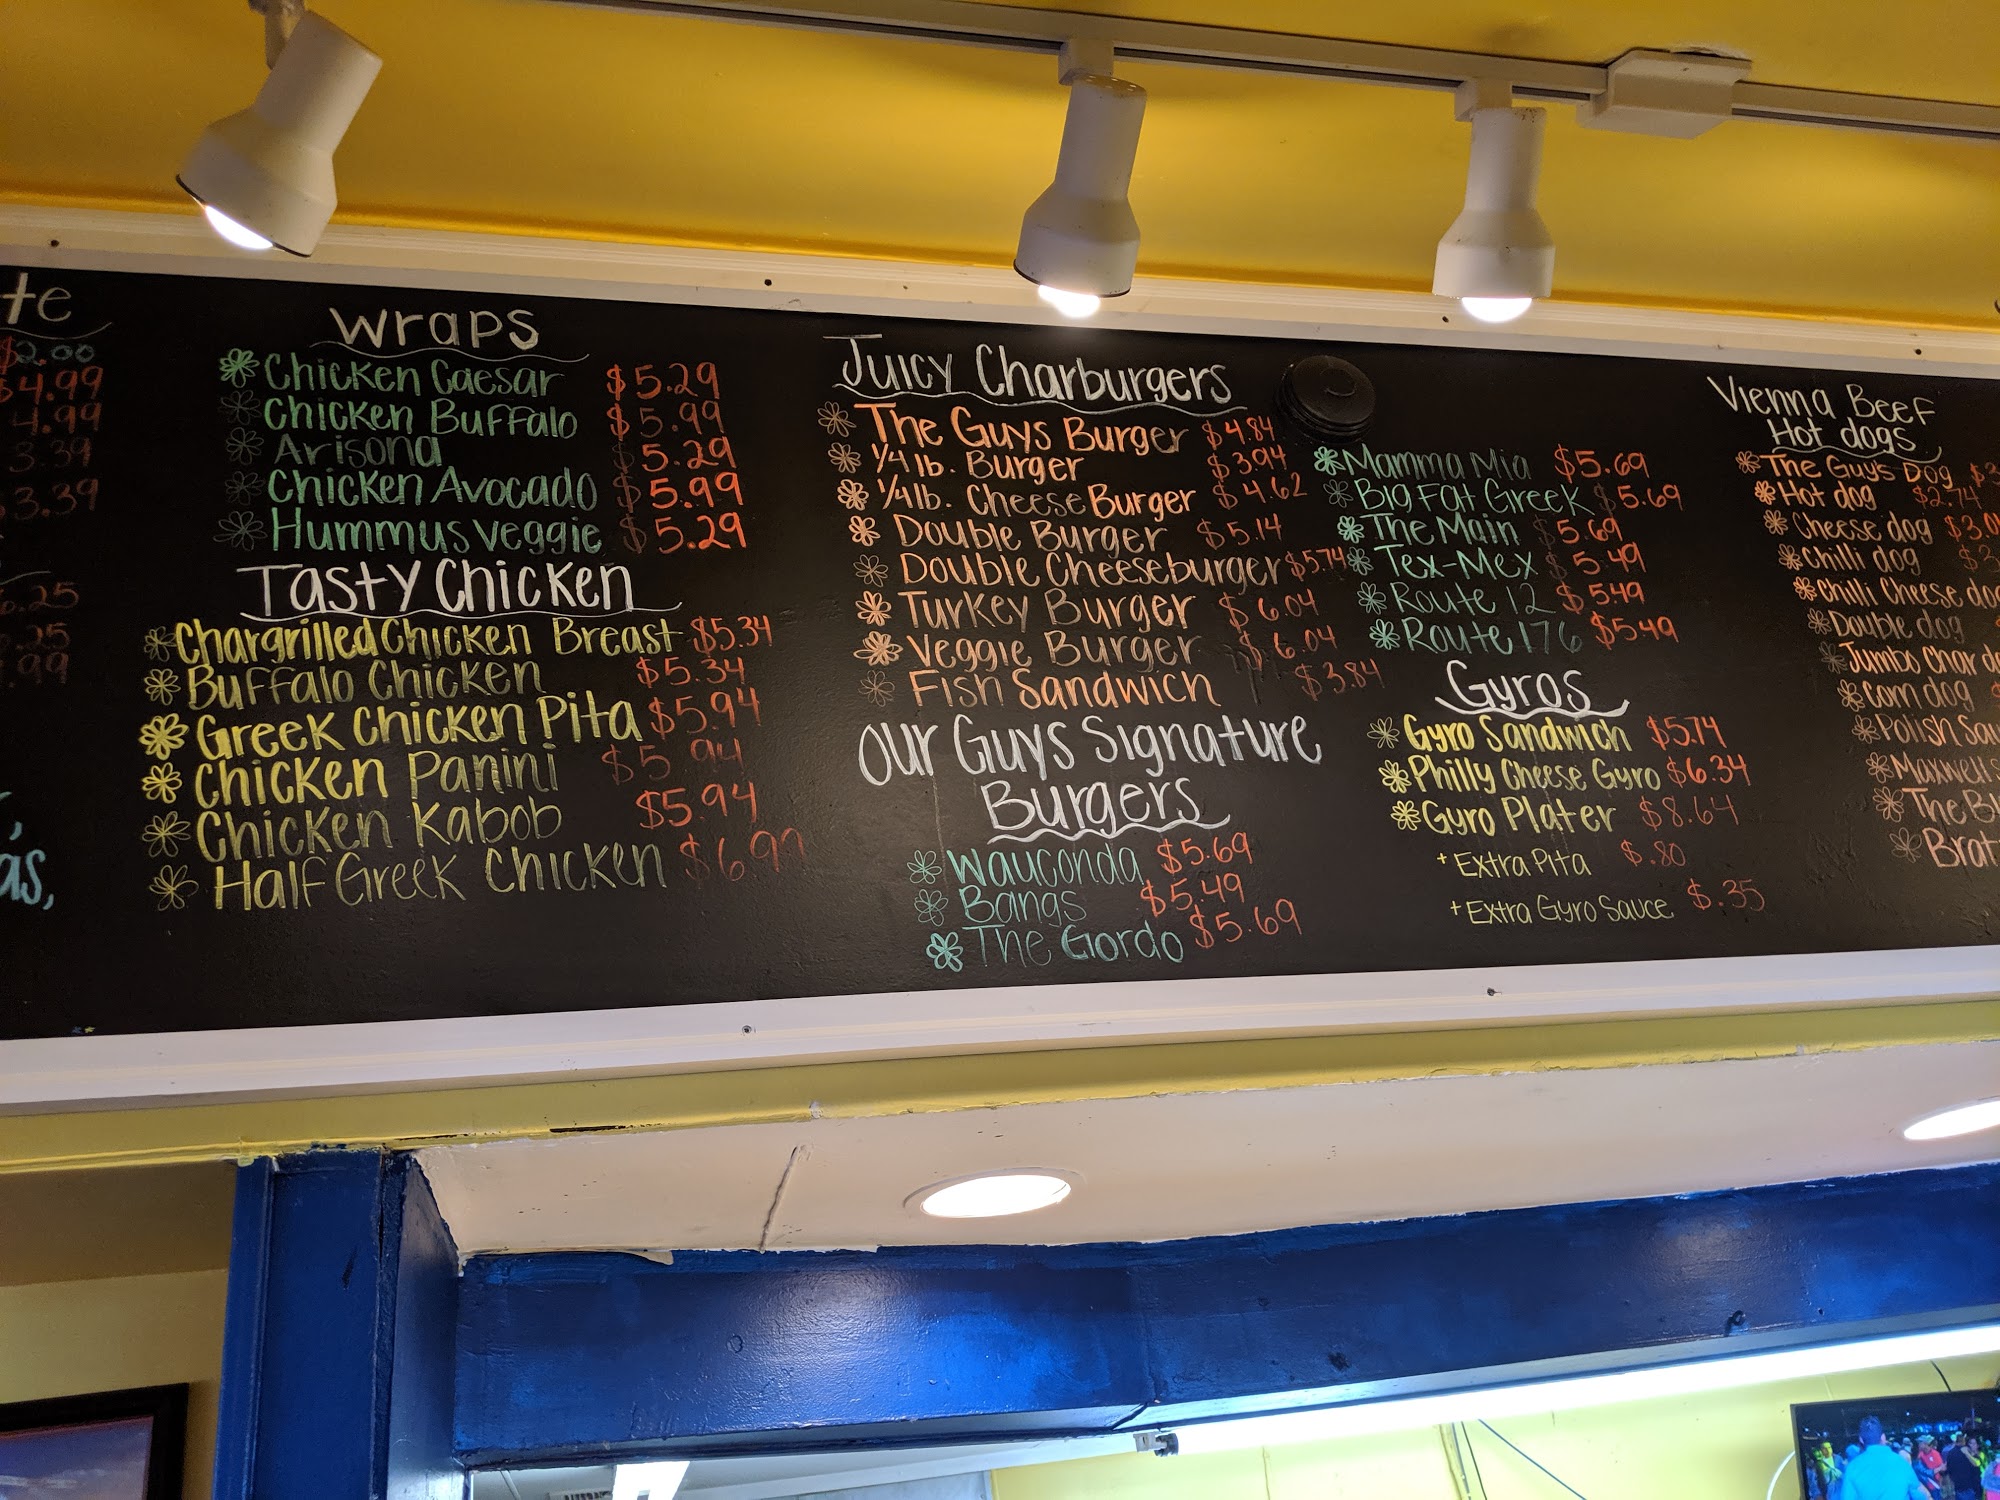 te
$2.00
$4.99
4.99
3.39
3.39
.25
.25
.99
as,
Wraps
Chicken Caesar $5.29
Chicken Buffalo $5.99
Arisona $5.29
Chicken Avocado $5.99
Hummus Veggie $5.29
Tasty Chicken
Chargrilled Chicken Breast $5.34
Buffalo Chicken $5.34
Greek Chicken Pita $5.94
Chicken Panini $5.94
Chicken Kabob $5.94
Half Greek Chicken
Juicy Charburgers
The Guys Burger $4.84
1/4 lb. Burger $3.94
1/4 lb. Cheese Burger $4.62
Double Burger $5.14
Double Cheeseburger $5.74
Turkey Burger $6.04
Veggie Burger $6.04
Fish Sandwich $3.84
Our Guys Signature
Burgers
Wauconda $5.69
Bangs $5.49
The Gordo $5.69
Mamma Mia $5.69
Big Fat Greek $5.69
The Main $5.69
Tex-Mex $5.49
Route 12 $5.49
Route 176 $5.49
Gyros
Gyro Sandwich $5.74
Philly Cheese Gyro $6.34
Gyro Plater $8.64
+ Extra Pita $.80
+ Extra Gyro Sauce $.35
Vienna Beef
Hot dogs
The Guys Dog $3
Hot dog $2.74
Cheese dog $3.0
Chilli dog $3
Chilli Cheese dog
Double dog $
Jumbo Char do
Corn dog $
Polish Sau
Maxwell S
The B
Brat